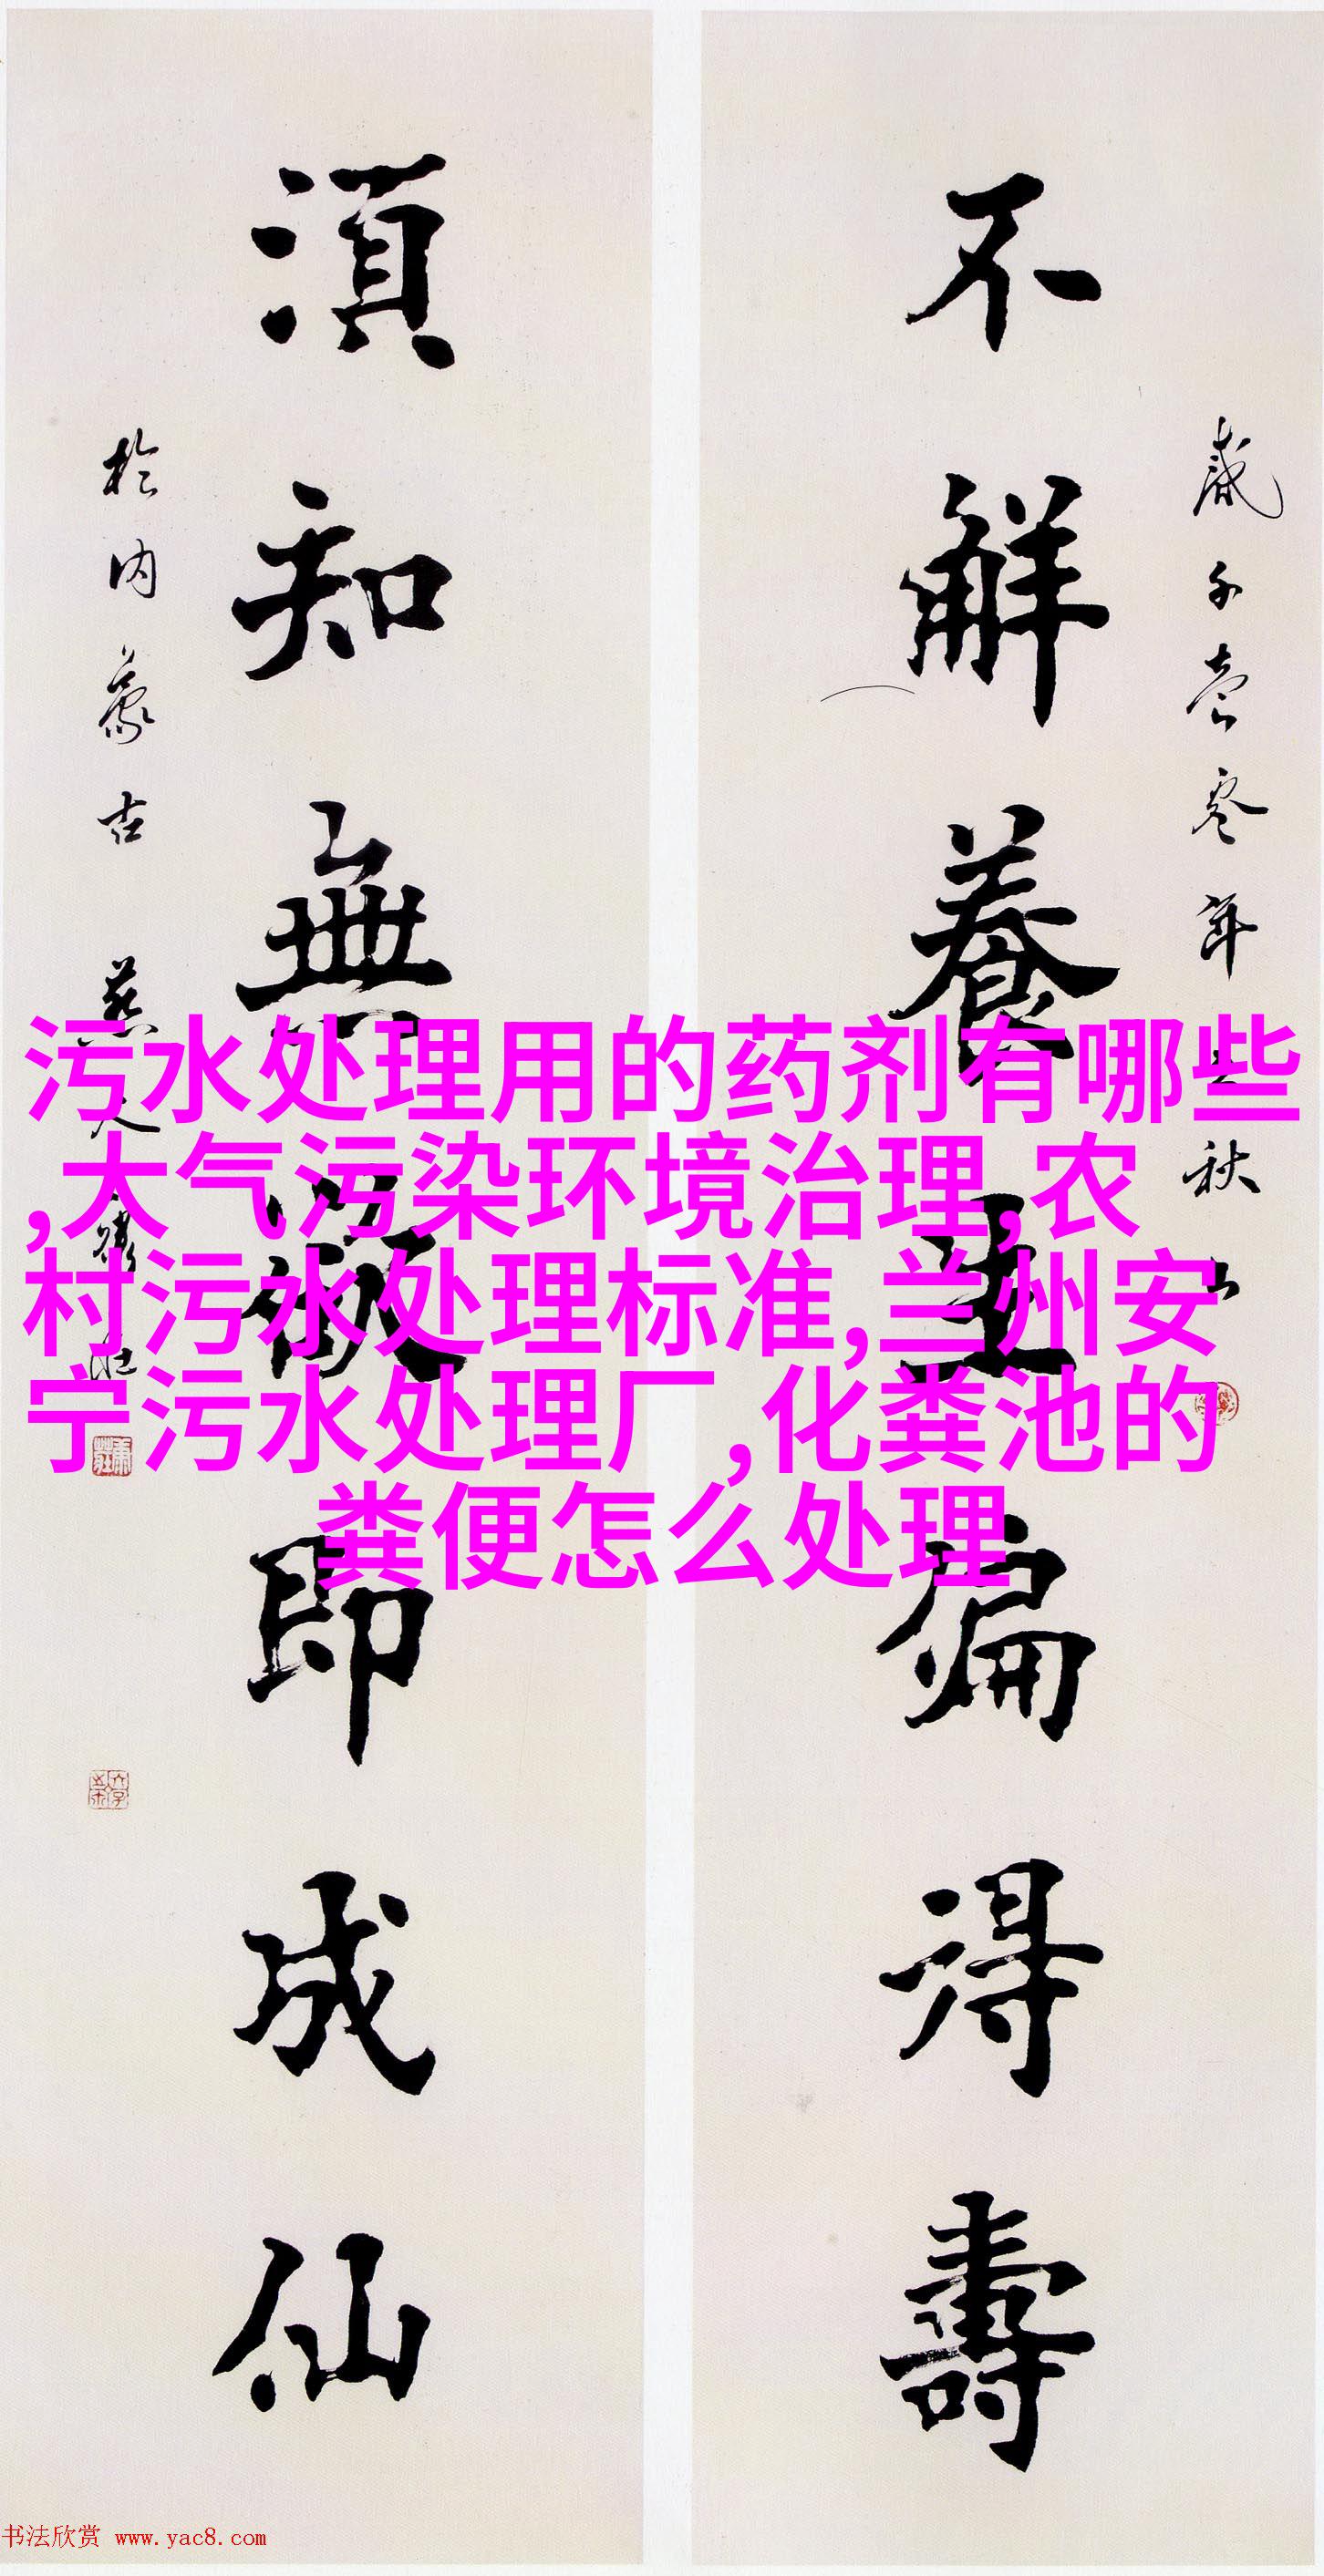 不解養生偏得壽
歲千壹零年之秋
須知無
即成仙
於內蒙古
污水处理用的药剂有哪些
,大气污染环境治理,农
村污水处理标准,兰州安
宁污水处理厂,化粪池的
粪便怎么处理
书法欣赏 www.yac8.com